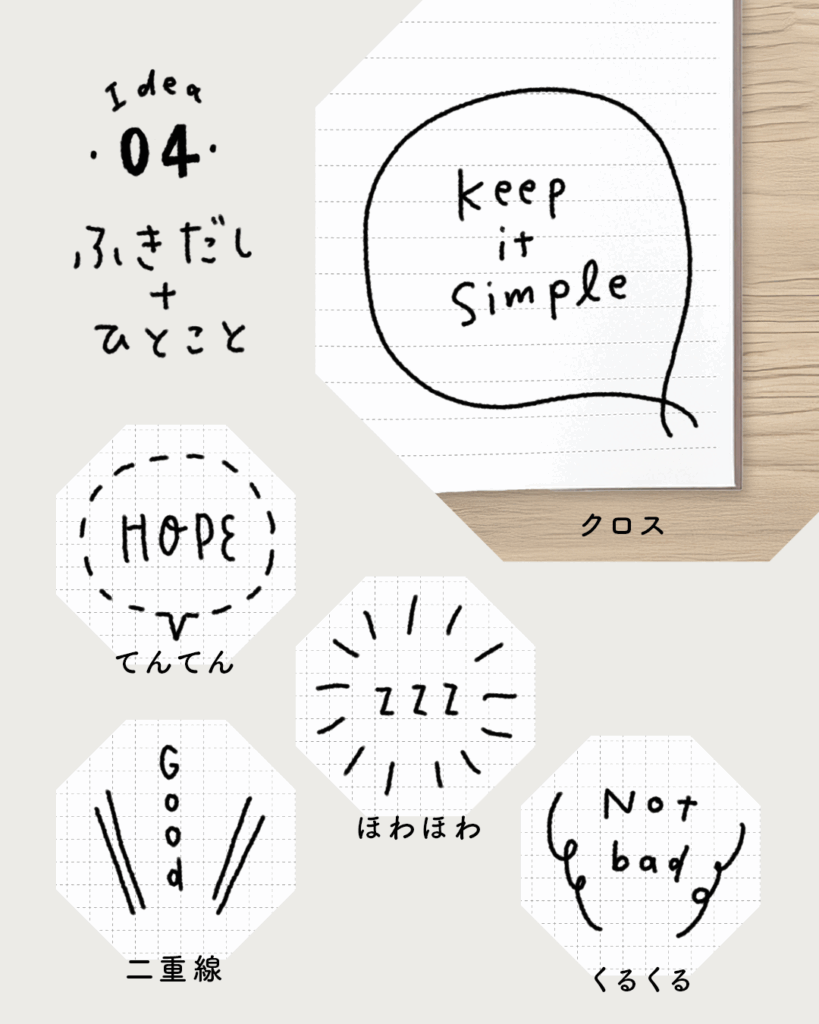 Idea
・04・
ふきだし
+
ひとこと
keep
it
Simple
クロス
HOPE
てんてん
z z z
ほわほわ
Good
二重線
Not
bad
くるくる